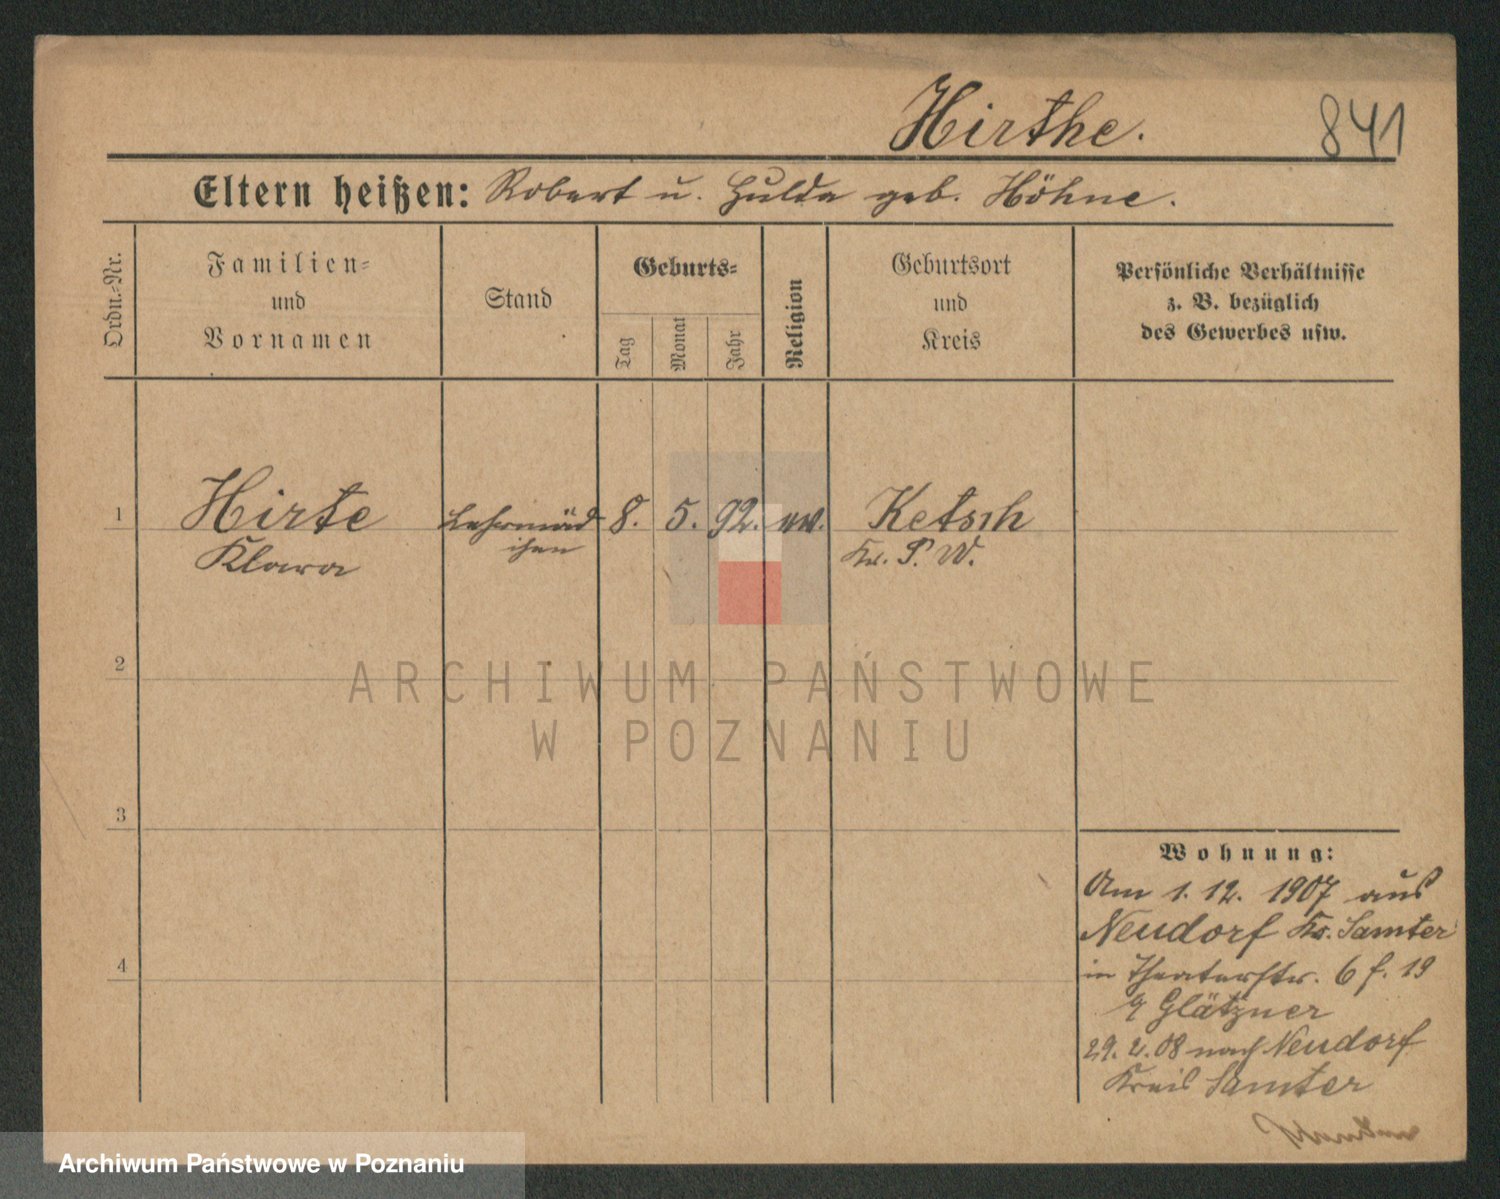 Hirthe.
841
Eltern heißen: Robert u. Hulda geb. Höhne.
Ordn.-Nr.
Familien-
und
Vornamen
Stand
Geburts-
Tag
Monat
Jahr
Religion
Geburtsort
und
Kreis
Persönliche Verhältnisse
z. B. bezüglich
des Gewerbes usw.
1
Hirte
Klara
Lehrmäd
chen
8. 5. 92. ev.
Ketsch
Kr. P. W.
2
ARCHIWUM PAŃSTWOWE
W POZNANIU
3
Wohnung:
Am 1. 12. 1907 aus
Neudorf Kr. Samter
4
in Theaterstr. 6 f. 19
Glätzner
29. 2. 08 nach Neudorf
Kreis Samter
Archiwum Państwowe w Poznaniu